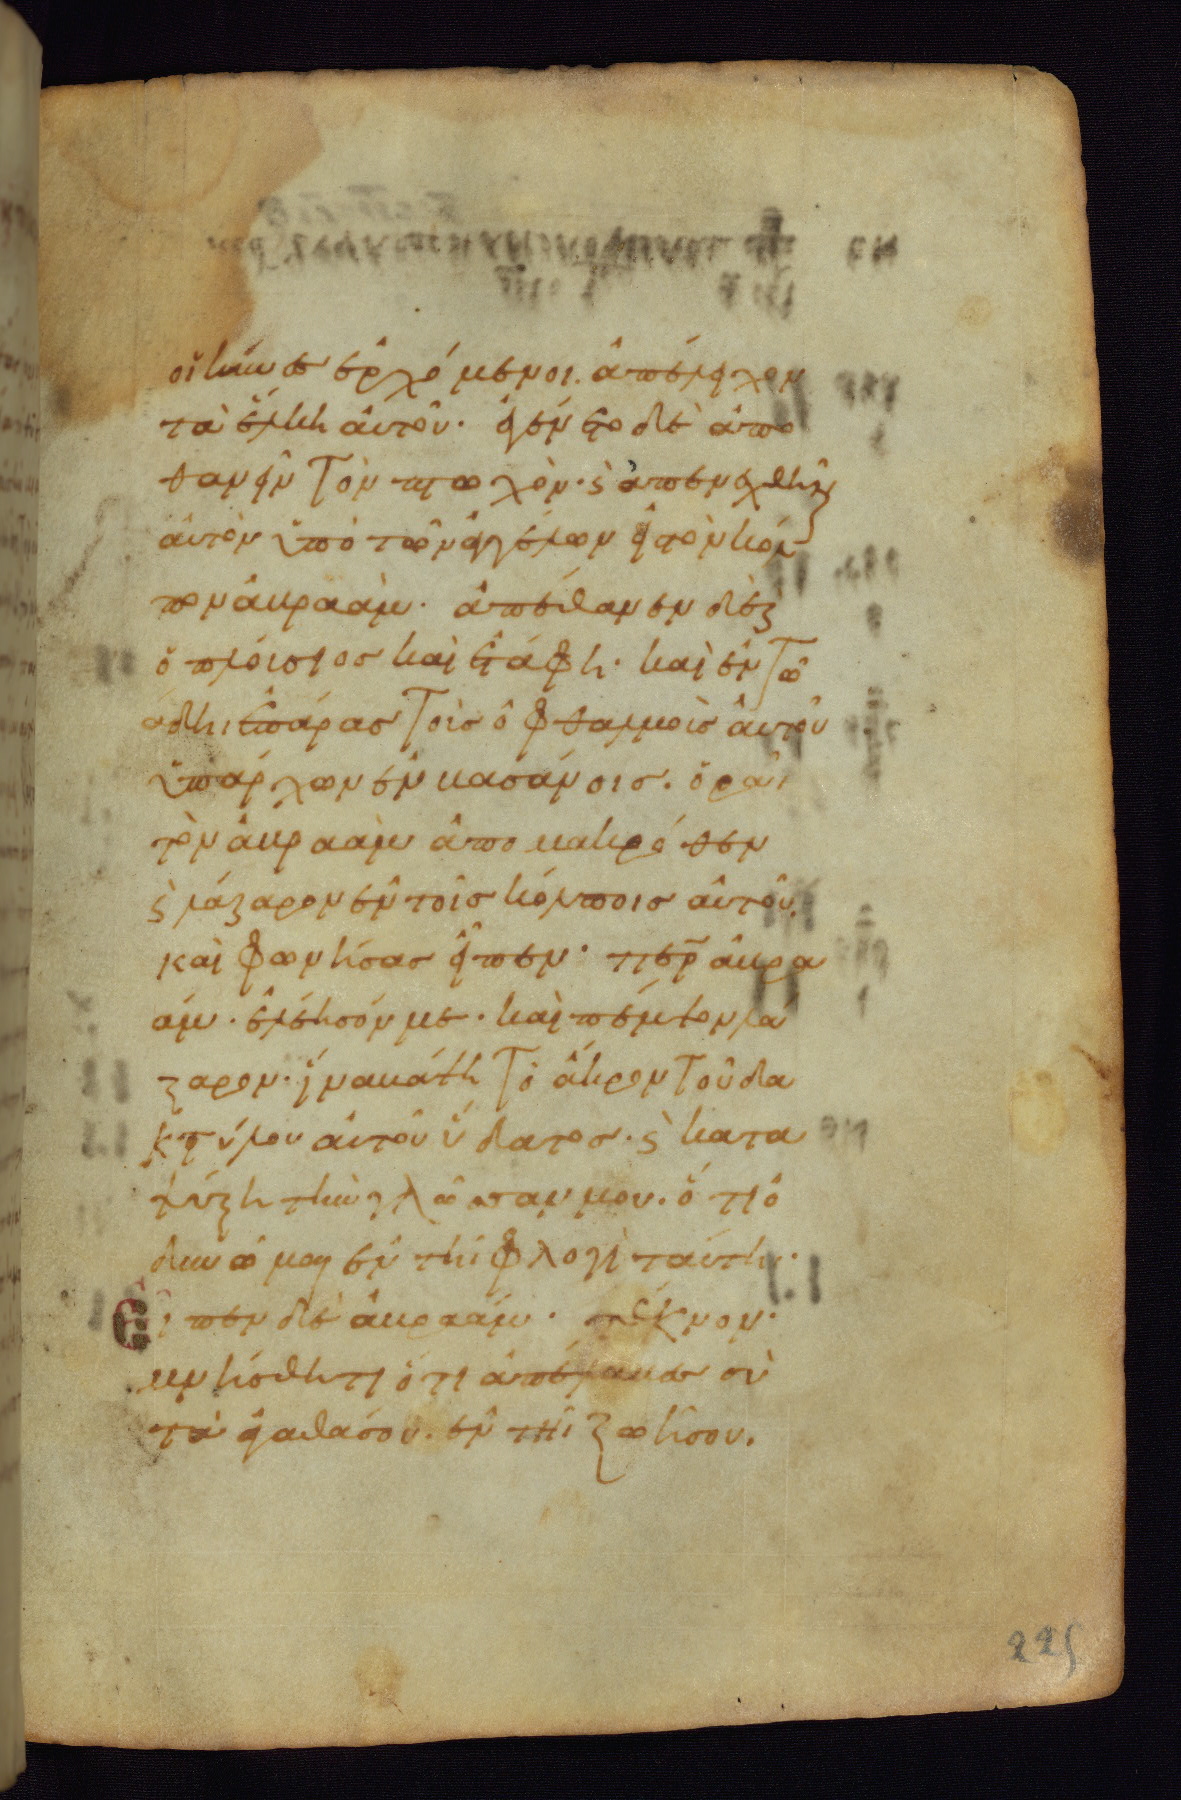 οἱ κύνες ἐρχόμενοι. ἀπέλειχον
τὰ ἕλκη αὐτοῦ. ἐγένετο δὲ ἀπο
θανεῖν τὸν πτωχὸν. ϛ ἀπενεχθῆναι
αὐτὸν ὑπὸ τῶν ἀγγέλων εἰς τὸν κόλ
πον ἀβραάμ. ἀπέθανεν δὲ καὶ
ὁ πλούσιος καὶ ἐτάφη. καὶ ἐν τῶ
ἅδηι ἐπάρας τοὺς ὀφθαλμοὺς αὐτοῦ
ὑπάρχων ἐν βασάνοις. ὁρᾶι
τὸν ἀβραὰμ ἀπο μακρόθεν
ϛ λάζαρον ἐν τοῖς κόλποις αὐτοῦ.
καὶ φωνήσας εἶπεν. περ ἀβρα
άμ. ἐλέησόν με. καὶ πέμψον λά
ζαρον. ἵνα βάψη τὸ ἄκρον τοῦ δα
κτύλου αὐτοῦ ὕδατος. ϛ κατα
ψύξη τὴν γλῶσσαν μου. ὅτι ὀ
δυνῶμαι ἐν τῆι φλογὶ ταύτη.
Εἶπεν δὲ ἀβραάμ. τέκνον.
μνήσθητι ὅτι ἀπέλαβες σὺ
τὰ ἀγαθά σου. ἐν τῆι ζωῆ σου.
225